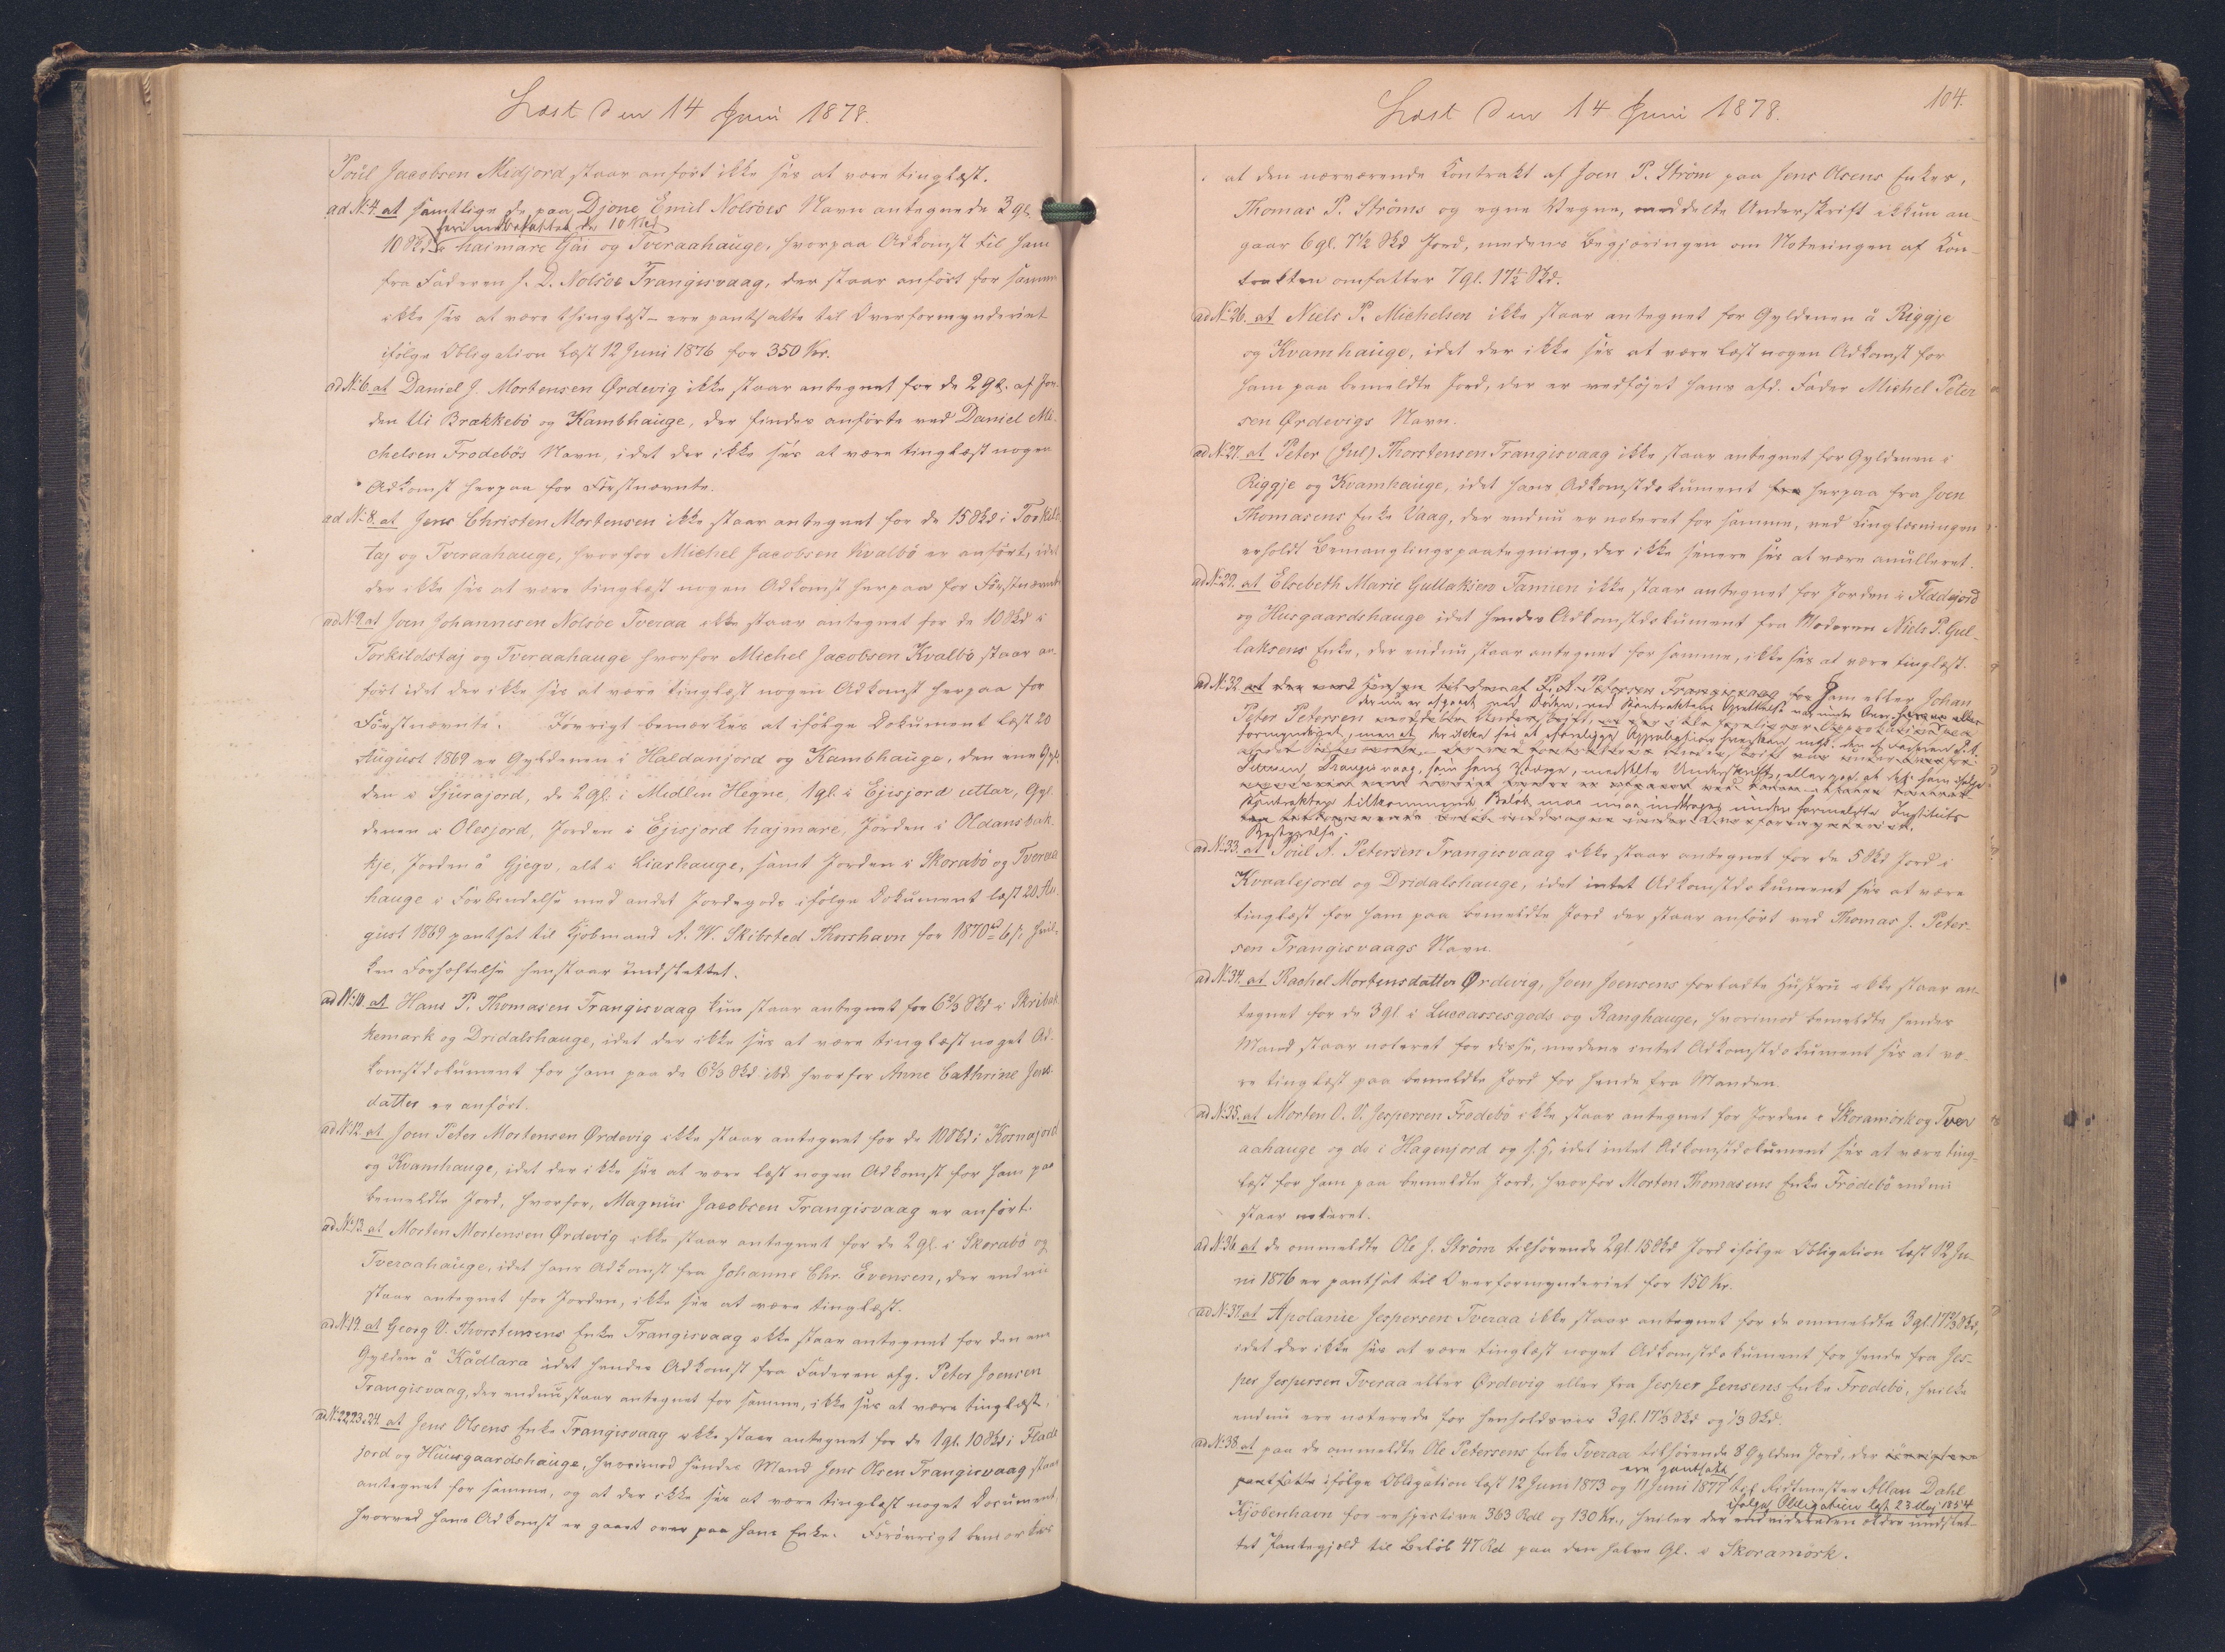 Læst den 14 Juni 1878.
Poül Jacobsen Midjord staar anført ikke sees at være tinglæst.
ad No 4. at samtlige de paa Djone Emil Nolsöes Navn antegnede 3 gl.
heri indbefattet de 10 Skd
10 Skd i haimare Gai og Tveraahauge, hvorpaa Adkomst til ham
fra Faderen J. D. Nolsöe Trangisvaag, der staar anført for samme
ikke sees at være thinglæst – ere pantsatte til Overformynderiet
ifølge Obligation læst 12 Juni 1876 for 350 Kr.
ad No 6. at Daniel J. Mortensen Ørdevig ikke staar antegnet for de 2 gl. af Jor-
den Ui Brækkebö og Kambhauge, der findes anførte ved Daniel Mi-
chelsen Frodebös Navn, idet der ikke sees at være tinglæst nogen
Adkomst herpaa for Førstnævnte.
ad No 8. at Jens Christen Mortensen ikke staar antegnet for de 15 Skd i Torkils
taj og Tveraahauge, hvorfor Michel Jacobsen Kvalbö er anført, idet
der ikke sees at være tinglæst nogen Adkomst herpaa for Førstnævnte
ad No 9. at Joen Johannesen Nolsöe Tveraa ikke staar antegnet for de 10 Skd i
Torkildstaj og Tveraahauge hvorfor Michel Jacobsen Kvalbö staar an-
ført idet der ikke sees at være tinglæst nogen Adkomst herpaa for
Førstnævnte. Iövrigt bemærkes at ifølge Dokument læst 20
August 1869 er Gyldenen i Haldanjord og Kambhauge, den ene Gyl-
den i Sjurajord, de 2 gl. i Medlin Hegne, 1 gl. i Ejisjord uttar, Gyl-
denen i Olesjord, Jorden i Ejisjord hajmare, Jorden i Oldansbak-
kje, Jorden å Gjegv, alt i Liarhauge, samt Jorden i Skorabö og Tveraa
hauge i Forbindelse med andet Jordegods ifølge Dokument læst 20 Au-
gust 1869 pantsat til Kjøbmand A. W. Skibsted Thorshavn for 1870 rd 6 s. hvil-
ken Forhæftelse henstaar uudslettet.
ad No 10. at Hans P. Thomasen Trangisvaag kun staar antegnet for 6⅔ Skd i Skribak
kemark og Dridalshauge, idet der ikke sees at være tinglæst noget Ad-
komstdokument for ham paa de 6⅔ Skd ibd. hvorfor Anne Cathrine Jens-
datter er anført.
ad No 12. at Joen Peter Mortensen Ørdevig ikke staar antegnet for de 10 Skd i Kornajord
og Kvamhauge, idet der ikke sees at være læst nogen Adkomst for ham paa
bemeldte Jord, hvorfor, Magnus Jacobsen Trangisvaag er anført.
ad No 13. at Morten Mortensen Ørdevig ikke staar antegnet for de 2 gl. i Skorabö og
Tveraahauge, idet hans Adkomst fra Johanne Chr. Evensen, der endnu
staar antegnet for Jorden, ikke sees at være tinglæst.
ad No 19. at Georg V. Thorstensens Enke Trangisvaag ikke staar antegnet for den ene
Gylden å Kådlara idet hendes Adkomst fra Faderen afg. Peter Joensen
Trangisvaag, der endnu staar antegnet for samme, ikke sees at være tinglæst.
ad No 22,23 & 24. at Jens Olsens Enke Trangisvaag ikke staar antegnet for de 1 gl. 10 Skd i Flade
jord og Huusgaardshauge, hvorimod hendes Mand Jens Olsen Trangisvaag staar
antegnet for samme, og at der ikke sees at være tinglæst noget Document,
hvorved hans Adkomst er gaaet over paa hans Enke. Forøvrigt bemærkes
104.
Læst den 14 Juni 1878.
at den nærværende Kontrakt af Joen P. Ström paa Jens Olsens Enkes,
Thomas P. Ströms og egne Vegne, meddelte Underskrift ikkun an-
gaar 6 gl. 7½ Skd Jord, medens Begjæringen om Noteringen af Kon-
trakten omfatter 7 gl. 17½ Skd.
ad No 26. at Niels P. Michelsen ikke staar antegnet for Gyldenen å Riggje
og Kvamhauge, idet der ikke sees at være læst nogen Adkomst for
ham paa bemeldte Jord, der er vedføjet hans afd. Fader Michel Peter
sen Ørdevigs Navn.
ad No 27. at Peter (Jul) Thorstensen Trangisvaag ikke staar antegnet for Gyldenen i
Riggje og Kvamhauge, idet hans Adkomstdokument fra herpaa fra Joen
Thomasens Enke Vaag, der endnu er noteret for samme, ved Tinglæsningen
erholdt Bemanglingspaategning, der ikke senere sees at være anulleret.
ad No 29. at Elsebeth Marie Gullaksen Famien ikke staar antegnet for Jorden i Fladejord
og Husgaardshauge idet hendes Adkomstdokument fra Moderen Niels P. Gul-
laksens Enke, der endnu staar antegnet for samme, ikke sees at være tinglæst.
ad No 32. at den med Hensyn til den af P. A. Petersen Trangisvaag for ham eller Johan
der nu er afgaaet ved Døden, ved Kontraktens Oprettelse var under Over-
Peter Petersen meddelte Underskrift,
formynderiet, men at der ikke sees at foreligge Approbation hverken mht. den af Faderen P. A.
Petersen Trangisvaag, som hans Værge, meddelte Underskrift, eller paa at det ham ifølge
Kontrakten tilkommende Beløb maa indtages under formeldte Instituts
Bestyrelse.
ad No 33. at Poül A. Petersen Trangisvaag ikke staar antegnet for de 5 Skd Jord i
Kvaalejord og Dridalshauge, idet intet Adkomstdokument sees at være
tinglæst for ham paa bemeldte Jord der staar anført ved Thomas J. Peter-
sen Trangisvaags Navn.
ad No 34. at Rachel Mortensdatter Ørdevig, Joen Joensens forladte Hustru ikke staar an-
tegnet for de 3 gl. i Luccassesgods og Ranghauge, hvorimod bemeldte hendes
Mand staar noteret for disse, medens intet Adkomstdokument sees at væ-
re tinglæst paa bemeldte Jord for hende fra Manden.
ad No 35. at Morten O. V. Jespersen Frodebö ikke staar antegnet for Jorden i Skoramörk og Tver
aahauge og do i Hagenjord og s. H., idet intet Adkomstdokument sees at være ting-
læst for ham paa bemeldte Jord, hvorfor Morten Thomasens Enke Frödebö endnu
staar noteret.
ad No 36. at de ommeldte Ole J. Ström tilhørende 2 gl. 15 Skd Jord ifølge Obligation læst 12 Ju-
ni 1876 er pantsat til Overformynderiet for 150 Kr.
ad No 37. at Apolanie Jespersen Tveraa ikke staar antegnet for de ommeldte 3 gl. 17⅔ Skd,
idet der ikke sees at være tinglæst noget Adkomstdokument for hende fra Jes-
per Jespersen Tveraa eller Ørdevig eller fra Jesper Jensens Enke Frodebö, hvilke
endnu ere noterede for henholdsvis 3 gl. 17⅓ Skd og ⅓ Skd.
ad No 38 at paa de ommeldte Ole Petersens Enke Tveraa tilhørende 8 Gylden Jord, der
ere pantsatte
pantsatte ifølge Obligation læst 12 Juni 1873 og 11 Juni 1877 til Ridtmester Allan Dahl
ifølge Obligation læst 23 Maj 1854
Kjöbenhavn for respective 363 Rdl og 130 Kr., hviler der endvidere en ældre uudslet-
tet Pantegjæld til Beløb 47 Rd paa den halve Gl. i Skoramörk.